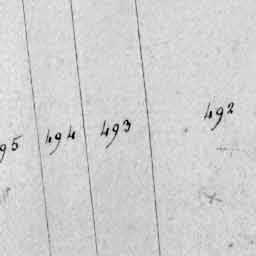 95 494 493 492